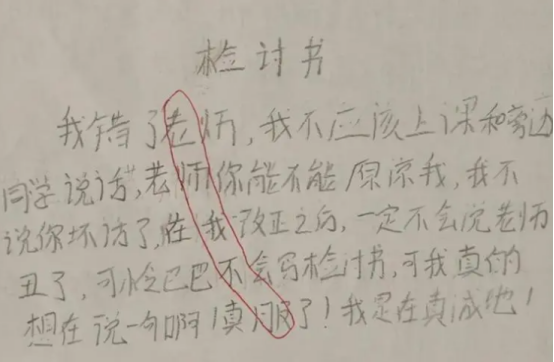 检讨书
我错了老师,我不应该上课和旁边
同学说话,老师你能不能原谅我,我不
说你坏访了,在我改正之后,一定不会说老师
丑了,可怜巴巴不会写检讨书,可我真的
想在说一句啊!真服了!我是在真诚地!